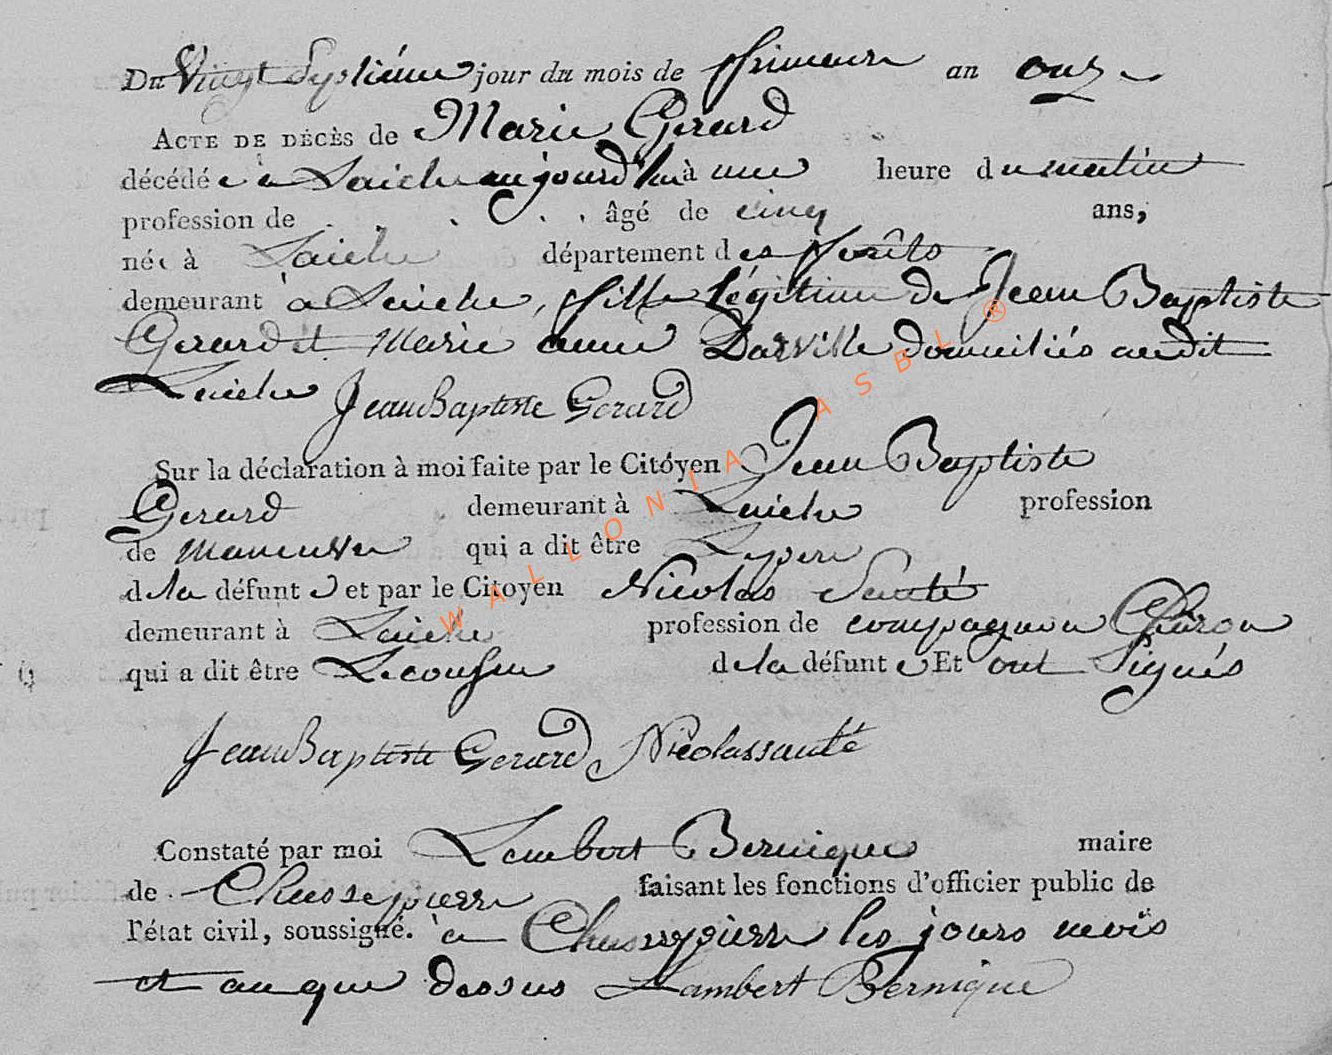 Du Vingt Septiéme jour du mois de frimaire an onze
ACTE DE DÉCÈS de Marie Gerard
décédée à Laiche aujourd'hui à une heure du matin
profession de . . . . âgé de cinq ans,
née à Laiche département des forêts
demeurant à Laiche, fille légitime de Jean Baptiste
Gerard et Marie anne Darville domiciliés audit
Laiche Jean Baptiste Gerard
Sur la déclaration à moi faite par le Citoyen Jean Baptiste
Gerard demeurant à Laiche profession
de manœuvre qui a dit être Le pere
de la défunte et par le Citoyen Nicolas Santé
demeurant à Laiche profession de compagnon
qui a dit être Le cousin de la défunte Et ont Signés
Jean Baptiste Gerard Nicolas santé
Constaté par moi Lambert Bernique maire
de Chassepierre faisant les fonctions d'officier public de
l'état civil, soussigné. à Chassepierre les jours mois
et an que dessus Lambert Bernique
WALLONIA ASBL ®